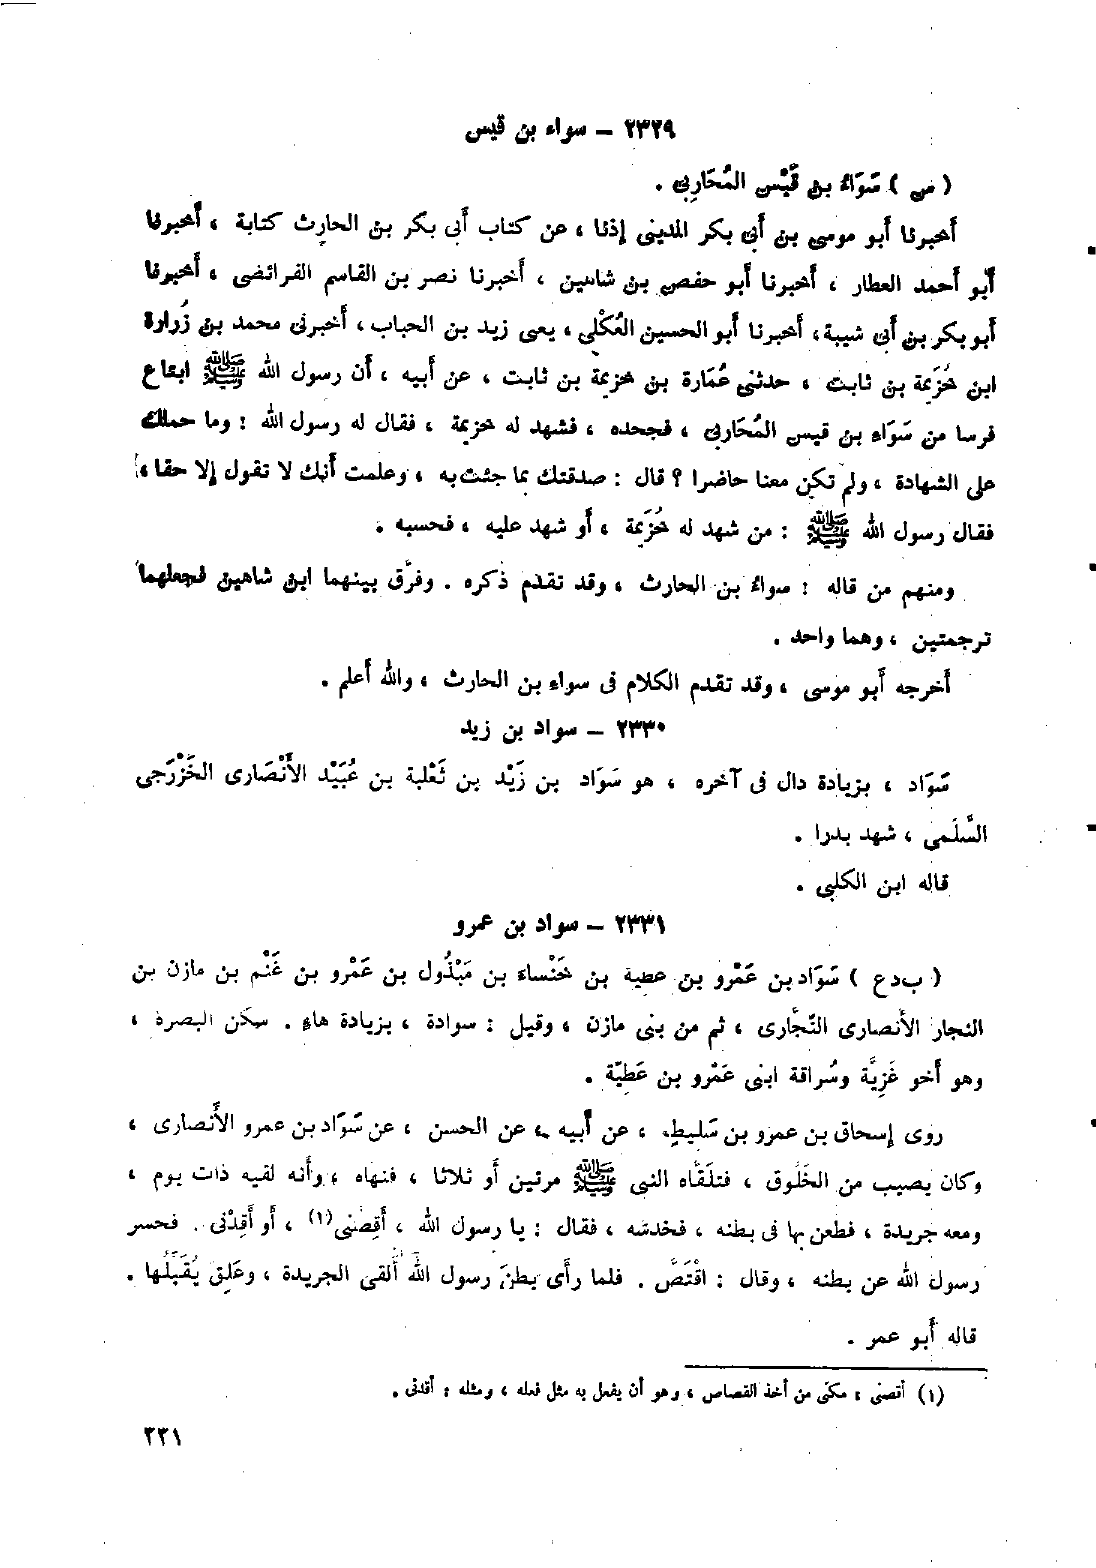 ٢٣٢٩ – سواء بن قيس
( س ) سَوَاءُ بن قَيْس المُحَارِبي .
أخبرنا أبو موسى بن أبي بكر المديني إذنا ، عن كتاب أبى بكر بن الحارث كتابة ، أخبرنا
أبو أحمد العطار ، أخبرنا أبو حفص بن شاهين ، أخبرنا نصر بن القاسم الفرائضى ، أخبرنا
أبو بكر بن أبي شيبة، أخبرنا أبو الحسين العُكْلي ، يعنى زيد بن الحباب ، أخبرنى محمد بن زُرارة
ابن خُزَيمة بن ثابت ، حدثني عُمَارة بن خزيمة بن ثابت ، عن أبيه ، أن رسول الله ﷺ ابتاع
فرسا من سَوَاءِ بن قيس المُحَاربي ، فجحده ، فشهد له خزيمة ، فقال له رسول الله : وما حملك
على الشهادة ، ولم تكن معنا حاضرا ؟ قال : صدقتك بما جئت به ، وعلمت أنك لا تقول إلا حقا ،
فقال رسول الله ﷺ : من شهد له خُزَيمة ، أو شهد عليه ، فحسبه .
ومنهم من قاله : سواءُ بن الحارث ، وقد تقدم ذكره . وفرَّق بينهما ابن شاهين فجعلهما
ترجمتين ، وهما واحد .
أخرجه أبو موسى ، وقد تقدم الكلام فى سواء بن الحارث ، والله أعلم .
٢٣٣٠ – سواد بن زيد
سَوَاد ، بزيادة دال فى آخره ، هو سَوَاد بن زَيْد بن ثَعْلبة بن عُبَيْد الأَنْصَارى الخَزْرَجى
السَّلَمى ، شهد بدرا .
قاله ابن الكلبي .
٢٣٣١ – سواد بن عمرو
( ب د ع ) سَوَاد بن عَمْرو بن عطية بن خَنْساء بن مَبْذُول بن عَمْرو بن غَنْم بن مازن بن
النجار الأنصارى النَّجَّارى ، ثم من بنى مازن ، وقيل : سوادة ، بزيادة هاء . سكن البصرة ،
وهو أخو غَزِيَّة وسُراقة ابنى عَمْرو بن عَطِيَّة .
روى إسحاق بن عمرو بن سَلِيط ، عن أبيه ، عن الحسن ، عن سَوَاد بن عمرو الأَنصارى ،
وكان يصيب من الخَلُوق ، فتلقَّاه النبى ﷺ مرتين أو ثلاثا ، فنهاه ، وأنه لقيه ذات يوم ،
ومعه جريدة ، فطعن بها فى بطنه ، فخدشه ، فقال : يا رسول الله ، أَقِصَّنى(١) ، أو أَقِدْنى . فحسر
رسول الله عن بطنه ، وقال : اقْتَصَّ . فلما رأى بطنَ رسول الله أَلقى الجريدة ، وعَلِق يُقَبِّلُها .
قاله أبو عمر .
(١) أقصنى : مكنى من أخذ القصاص ، وهو أن يفعل به مثل فعله ، ومثله : أقدنى .
٣٣١